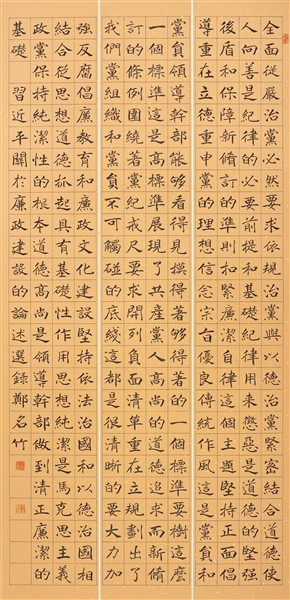 全面從嚴治黨必然要求依規治黨與以德治黨緊密結合道德使
人向善是紀律的必要前提和基礎法律用來懲惡是道德的堅強
後盾和保障新修訂的準則緊扣廉潔自律這個主題堅持正面倡
導重在立德重申黨的理想信念宗旨優良傳統作風這是黨員和
黨員領導幹部能夠看得見摸得著的一個標準要樹這麼
一個標準既展現了共產黨人高尚道德追求而新修
訂的條例圍繞著黨紀戒尺要求開列負面清單重在立規劃出了
我們黨組織和黨員不可觸碰的底綫這都是很清晰的要大力加
強反腐倡廉教育和廉政文化建設堅持依法治國和以德治國相
結合從思想道德抓起具有基礎性作用思想純潔是馬克思主義
政黨保持純潔性的根本道德高尚是領導幹部做到清正廉潔的
基礎 習近平關於廉政建設的論述選錄鄭名竹